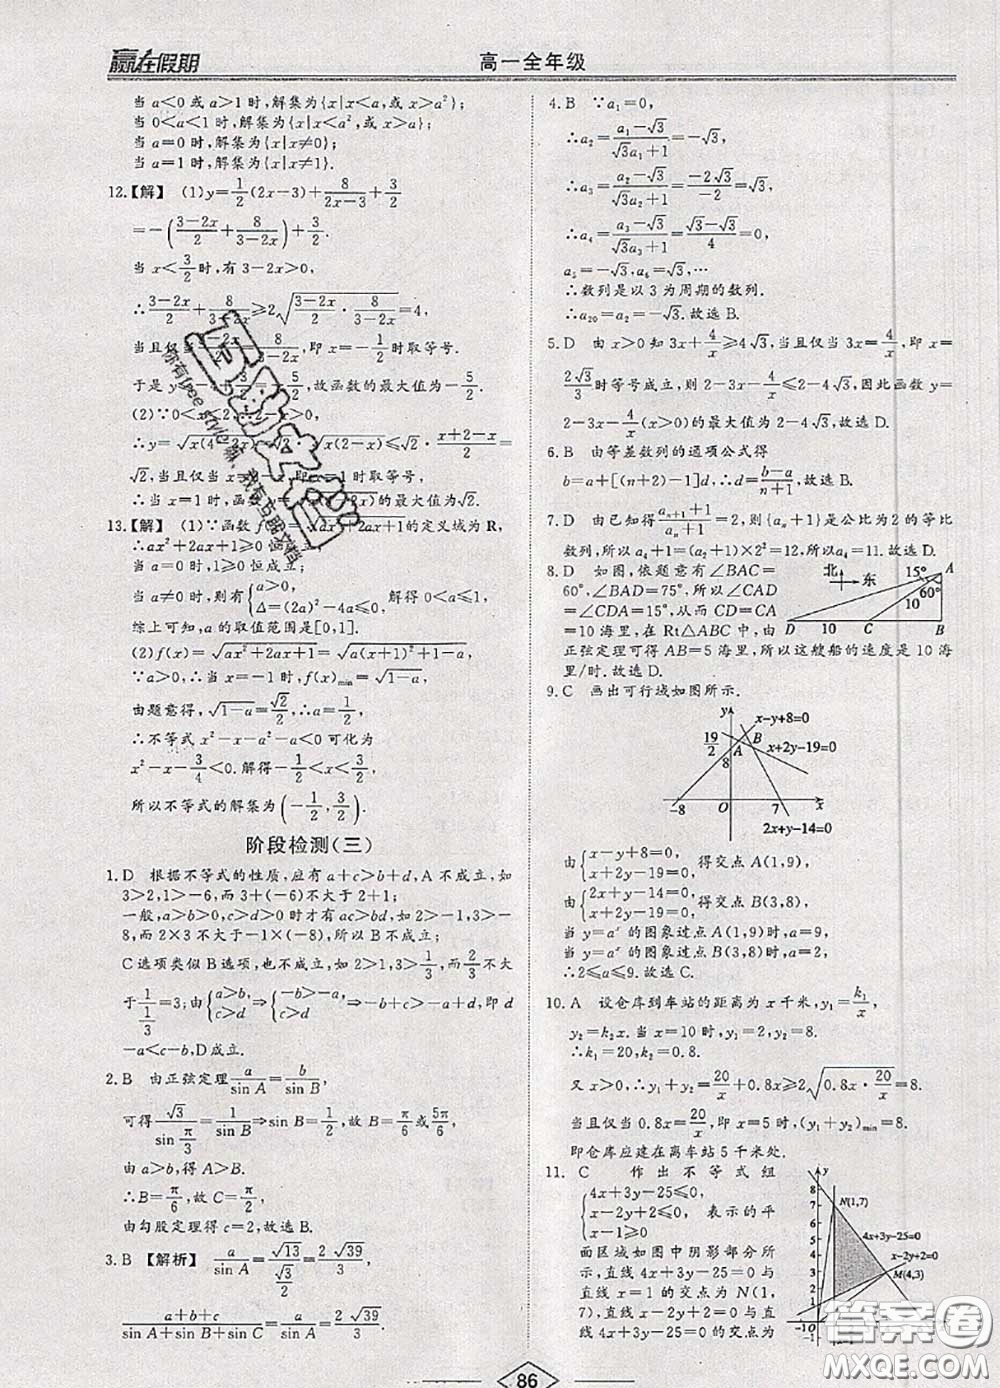 赢在假期
高一全年级
当 a<0 或 a>1 时,解集为{x|x<a,或 x>a²};
当 0<a<1 时,解集为{x|x<a²,或 x>a};
当 a=0 时,解集为{x|x≠0};
当 a=1 时,解集为{x|x≠1}.
12.【解】 (1)y=1/2(2x-3)+8/(2x-3)+3/2
=-((3-2x)/2+8/(3-2x))+3/2.
当 x<3/2时,有 3-2x>0,
∴(3-2x)/2+8/(3-2x)≥2√((3-2x)/2·8/(3-2x))=4,
当且仅当 8/ ,即 x=-1/2时取等号.
于是 y ,故函数的最大值为-5/2.
(2)∵0<
∴y=√x(4 √x(2-x)≤√2·(x+2-x)/2=
√2,当且仅当 时取等号,
∴当 x=1 时,函数 的最大值为√2.
13.【解】 (1)∵函数 f √ax²+2ax+1的定义域为 R,
∴ax²+2ax+1≥0
当 a=0 时,1≥0 恒成立;
当 a≠0 时,则有{a>0, Δ=(2a)²-4a≤0, 解得 0<a≤1,
综上可知,a 的取值范围是[0,1].
(2)f(x)=√(ax²+2ax+1)=√(a(x+1)²+1-a),
∵a>0,∴当 x=-1 时,f(x)min=√(1-a),
由题意得,√(1-a)=√2/2,∴a=1/2,
∴不等式 x²-x-a²-a<0 可化为
x²-x-3/4<0.解得-1/2<x<3/2,
所以不等式的解集为(-1/2,3/2).
阶段检测(三)
1.D 根据不等式的性质,应有 a+c>b+d,A 不成立,如
3>2,1>-6,而 3+(-6)不大于 2+1;
一般,a>b>0,c>d>0 时才有 ac>bd,如 2>-1,3>-
8,而 2×3 不大于-1×(-8),所以 B 不成立;
C 选项类似 B 选项,也不成立,如 2>1,3>1/3,而2/3不大
于1/(1/3)=3;由{a>b, c>d,⇒{-b>-a, c>d ⇒-b+c>-a+d,即 d
-a<c-b,D 成立.
2.B 由正弦定理a/sin A=b/sin B,
可得√3/sin π/3=1/sin B⇒sin B=1/2,故 B=π/6或5π/6,
由 a>b,得 A>B.
∴B=π/6,故 C=π/2,
由勾股定理得 c=2,故选 B.
3.B 【解析】 a/sin A=√13/(√3/2)=2√39/3,
(a+b+c)/(sin A+sin B+sin C)=a/sin A=2√39/3.
4.B ∵a₁=0,
∴a₂=(a₁-√3)/(√3a₁+1)=-√3,
∴a₃=(a₂-√3)/(√3a₂+1)=-2√3/-2=√3,
∴a₄=(a₃-√3)/(√3a₃+1)=(√3-√3)/4=0,
a₅=-√3,a₆=√3,…
∴数列是以 3 为周期的数列.
∴a₂₀=a₂=-√3.故选 B.
5.D 由 x>0 知 3x+4/x≥4√3,当且仅当 3x=4/x,即 x=
2√3/3时等号成立,则 2-3x-4/x≤2-4√3,因此函数 y=
2-3x-4/x(x>0)的最大值为 2-4√3,故选 D.
6.B 由等差数列的通项公式得
b=a+[(n+2)-1]d,∴d=(b-a)/(n+1),故选 B.
7.D 由已知得(aₙ₊₁+1)/(aₙ+1)=2,则{aₙ+1}是公比为 2 的等比
数列,所以 a₄+1=(a₂+1)×2²=12,所以 a₄=11.故选 D.
8.D 如图,依题意有∠BAC=
60°,∠BAD=75°,所以∠CAD
=∠CDA=15°,从而 CD=CA
=10 海里,在 Rt△ABC 中,由
正弦定理可得 AB=5 海里,所以这艘船的速度是 10 海
里/时.故选 D.
北
东
15°
60°
A
10
D
10
C
B
9.C 画出可行域如图所示.
y
x-y+8=0
19/2
A
B
x+2y-19=0
8
-8
O
7
x
2x+y-14=0
由{x-y+8=0, x+2y-19=0,得交点 A(1,9),
由{2x+y-14=0, x+2y-19=0,得交点 B(3,8),
当 y=aˣ 的图象过点 A(1,9)时,a=9,
当 y=aˣ 的图象过点 B(3,8)时,a=2,
∴2≤a≤9.故选 C.
10.A 设仓库到车站的距离为 x 千米,y₁=k₁/x,
y₂=k₂x.当 x=10 时,y₁=2,y₂=8.
∴k₁=20,k₂=0.8.
又 x>0,∴y₁+y₂=20/x+0.8x≥2√(0.8x·20/x)=8.
当且仅当 0.8x=20/x,即 x=5 时,(y₁+y₂)min=8.
即仓库应建在离车站 5 千米处.
11.C 作出不等式组
{4x+3y-25≤0, x-2y+2≤0, x-1≥0 表示的平
面区域如图中阴影部分所
示,直线 4x+3y-25=0 与
直线 x=1 的交点为 N(1,
7),直线 x-2y+2=0 与直线
4x+3y-25=0 的交点为
y
8
7
6
5
4
3
2
N(1,7)
4x+3y-25=0
x-2y+2=0
M(4,3)
-1O
-1
86
答案圈
MXQE.COM